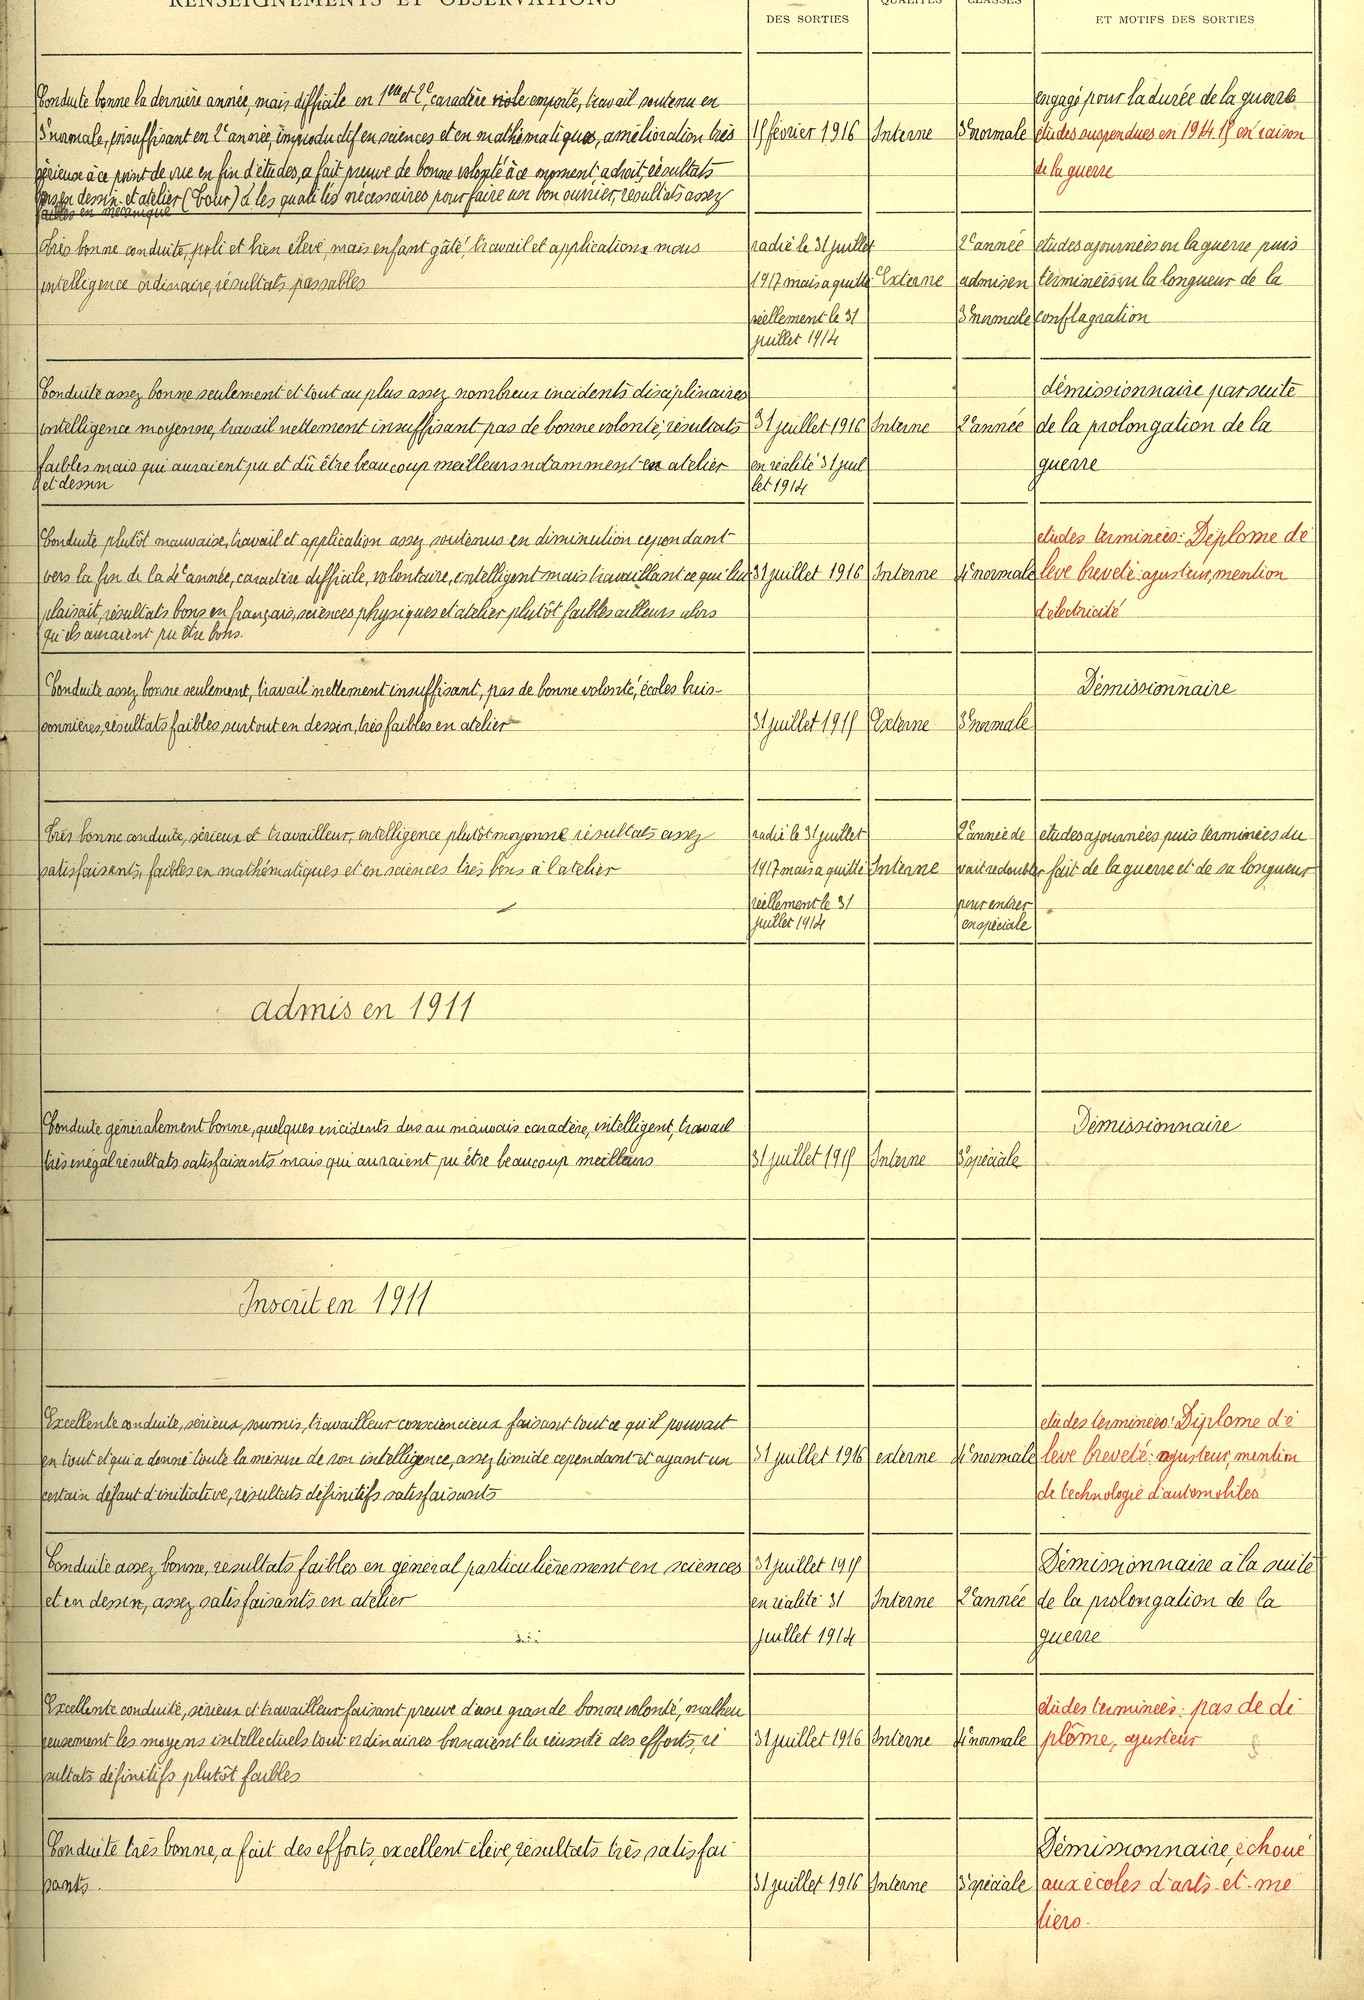 RENSEIGNEMENTS ET OBSERVATIONS
DES SORTIES
QUALITÉS
CLASSES
ET MOTIFS DES SORTIES
Conduite bonne la dernière année, mais difficile en 1ère et 2e, caractère emporté, travail soutenu en
3e normale, insuffisant en 2e année, improductif en sciences et en mathématiques, amélioration très
sérieuse à ce point de vue en fin d'études, a fait preuve de bonne volonté à ce moment adroit, résultats
bons en dessin et atelier (tour) a les qualités nécessaires pour faire un bon ouvrier, résultats assez
faibles en mécanique
15 février 1916
Interne
3e normale
engagé pour la durée de la guerre
études suspendues en 1914.15 en raison
de la guerre
Très bonne conduite, poli et bien élevé, mais enfant gâté, travail et applications nous
intelligence ordinaire, résultats passables
radié le 31 juillet
1917 mais a quitté
réellement le 31
juillet 1914
Externe
2e année
admis en
3e normale
études ajournées vu la guerre puis
terminées vu la longueur de la
conflagration
Conduite assez bonne seulement et tout au plus assez nombreux incidents disciplinaires
intelligence moyenne, travail nettement insuffisant pas de bonne volonté, résultats
faibles mais qui auraient pu et dû être beaucoup meilleurs notamment en atelier
et dessin
31 juillet 1916
en réalité 31 juil
let 1914
Interne
2e année
démissionnaire par suite
de la prolongation de la
guerre
Conduite plutôt mauvaise, travail et application assez soutenus en diminution cependant
vers la fin de la 4e année, caractère difficile, volontaire, intelligent mais travaillant ce qui lui
plaisait, résultats bons en français, sciences physiques et atelier plutôt faibles ailleurs alors
qu'ils auraient pu être bons.
31 juillet 1916
Interne
4e normale
études terminées: Diplome d'é
lève breveté: ajusteur, mention
d'électricité
Conduite assez bonne seulement, travail nettement insuffisant, pas de bonne volonté, écoles buis-
sonnières, résultats faibles surtout en dessin, très faibles en atelier
31 juillet 1915
Externe
3e normale
Démissionnaire
Très bonne conduite, sérieux et travailleur, intelligence plutôt moyenne résultats assez
satisfaisants, faibles en mathématiques et en sciences très bons à l'atelier
radié le 31 juillet
1917 mais a quitté
réellement le 31
juillet 1914
Interne
2e année de
vait redoubler
pour entrer
en spéciale
études ajournées puis terminées du
fait de la guerre et de sa longueur
admis en 1911
Conduite généralement bonne, quelques incidents dus au mauvais caractère, intelligent, travail
très inégal résultats satisfaisants mais qui auraient pu être beaucoup meilleurs
31 juillet 1915
Interne
3e spéciale
Démissionnaire
Inscrit en 1911
Excellente conduite, sérieux, soumis, travailleur consciencieux faisant tout ce qu'il pouvait
en tout et qui a donné toute la mesure de son intelligence, assez timide cependant et ayant un
certain défaut d'initiative, résultats définitifs satisfaisants
31 juillet 1916
externe
4e normale
études terminées: Diplome d'é
lève breveté: ajusteur, mention
de technologie d'automobiles
Conduite assez bonne, résultats faibles en général particulièrement en sciences
et en dessin, assez satisfaisants en atelier
31 juillet 1915
en réalité 31
juillet 1914
Interne
2e année
Démissionnaire à la suite
de la prolongation de la
guerre
Excellente conduite, sérieux et travailleur faisant preuve d'une grande bonne volonté, malheu
reusement les moyens intellectuels tout ordinaires bornaient la réussite des efforts, ré
sultats définitifs plutôt faibles
31 juillet 1916
Interne
4e normale
études terminées: pas de di
plôme, ajusteur
Conduite très bonne, a fait des efforts, excellent élève, résultats très satisfai
sants.
31 juillet 1916
Interne
3e spéciale
Démissionnaire, échoué
aux écoles d'arts-et-mé
tiers.